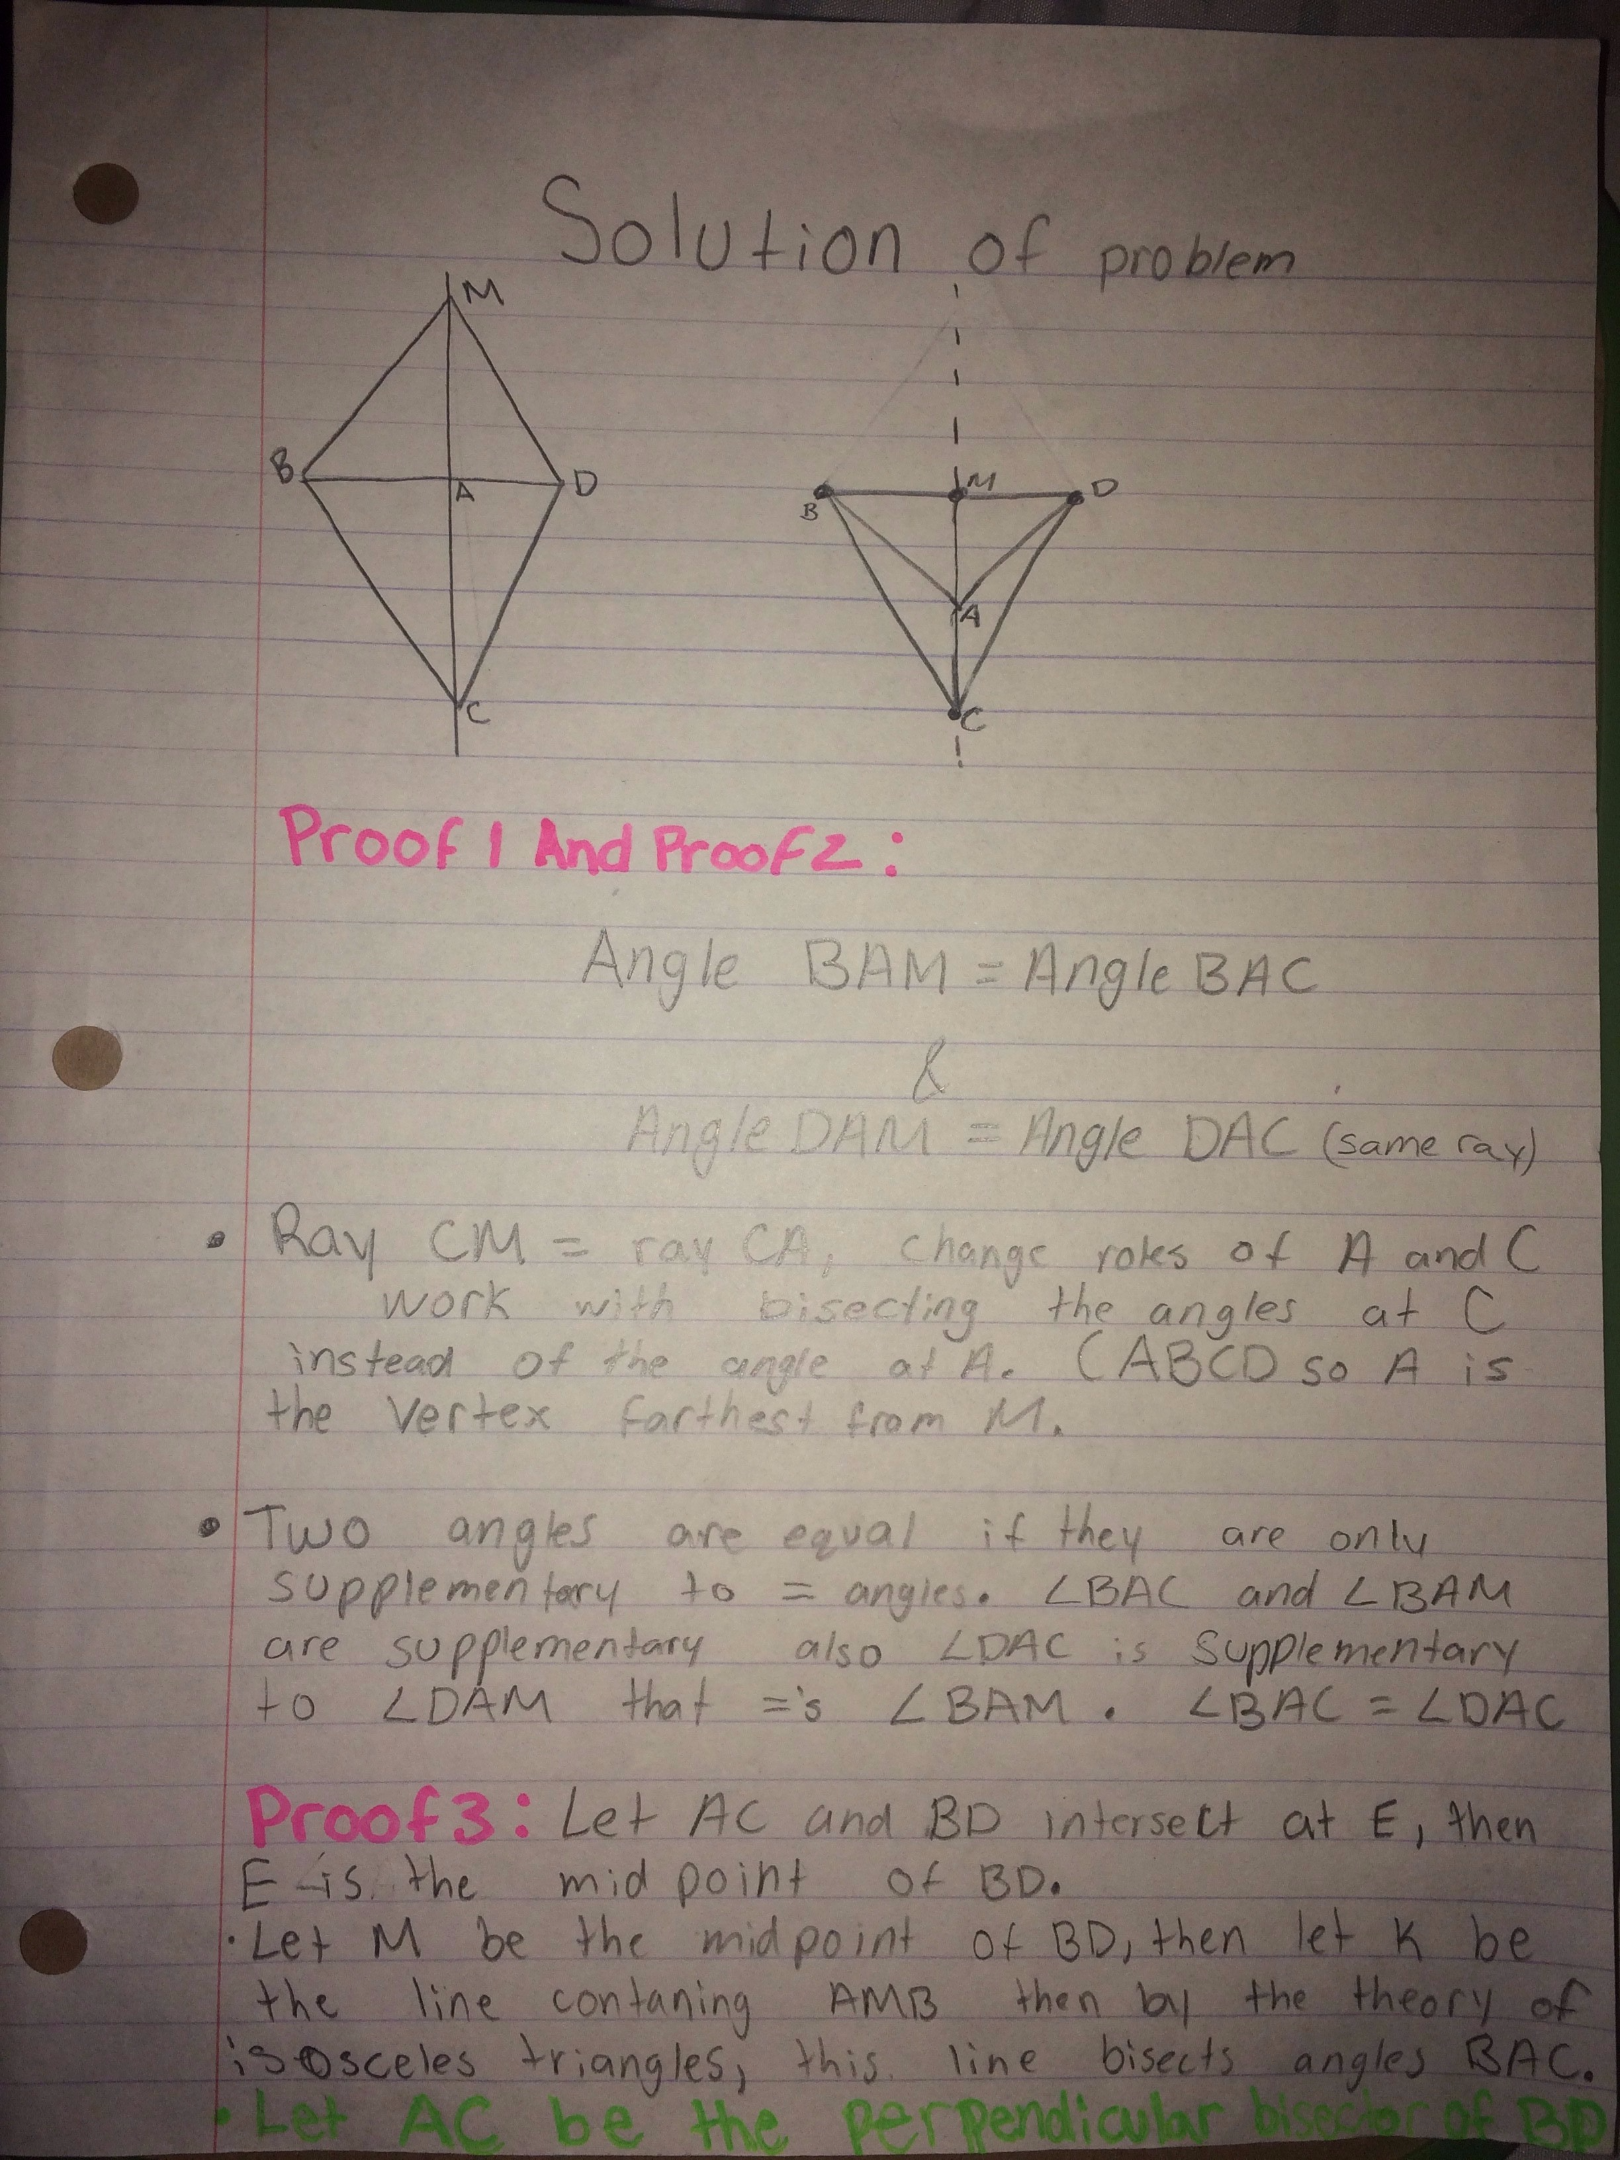 Solution of problem
M
B
A
D
C
B
M
D
A
C
Proof 1 And Proof 2 :
Angle BAM = Angle BAC
&
Angle DAM = Angle DAC (same ray)
• Ray CM = ray CA, change roles of A and C
work with bisecting the angles at C
instead of the angle at A. (ABCD so A is
the vertex farthest from M.
• Two angles are equal if they are only
supplementary to = angles. ∠BAC and ∠BAM
are supplementary also ∠DAC is supplementary
to ∠DAM that ='s ∠BAM. ∠BAC = ∠DAC
Proof 3: Let AC and BD intersect at E, then
E is the mid point of BD.
• Let M be the midpoint of BD, then let K be
the line contaning AMB then by the theory of
isosceles triangles, this line bisects angles BAC.
• Let AC be the perpendicular bisector of BD